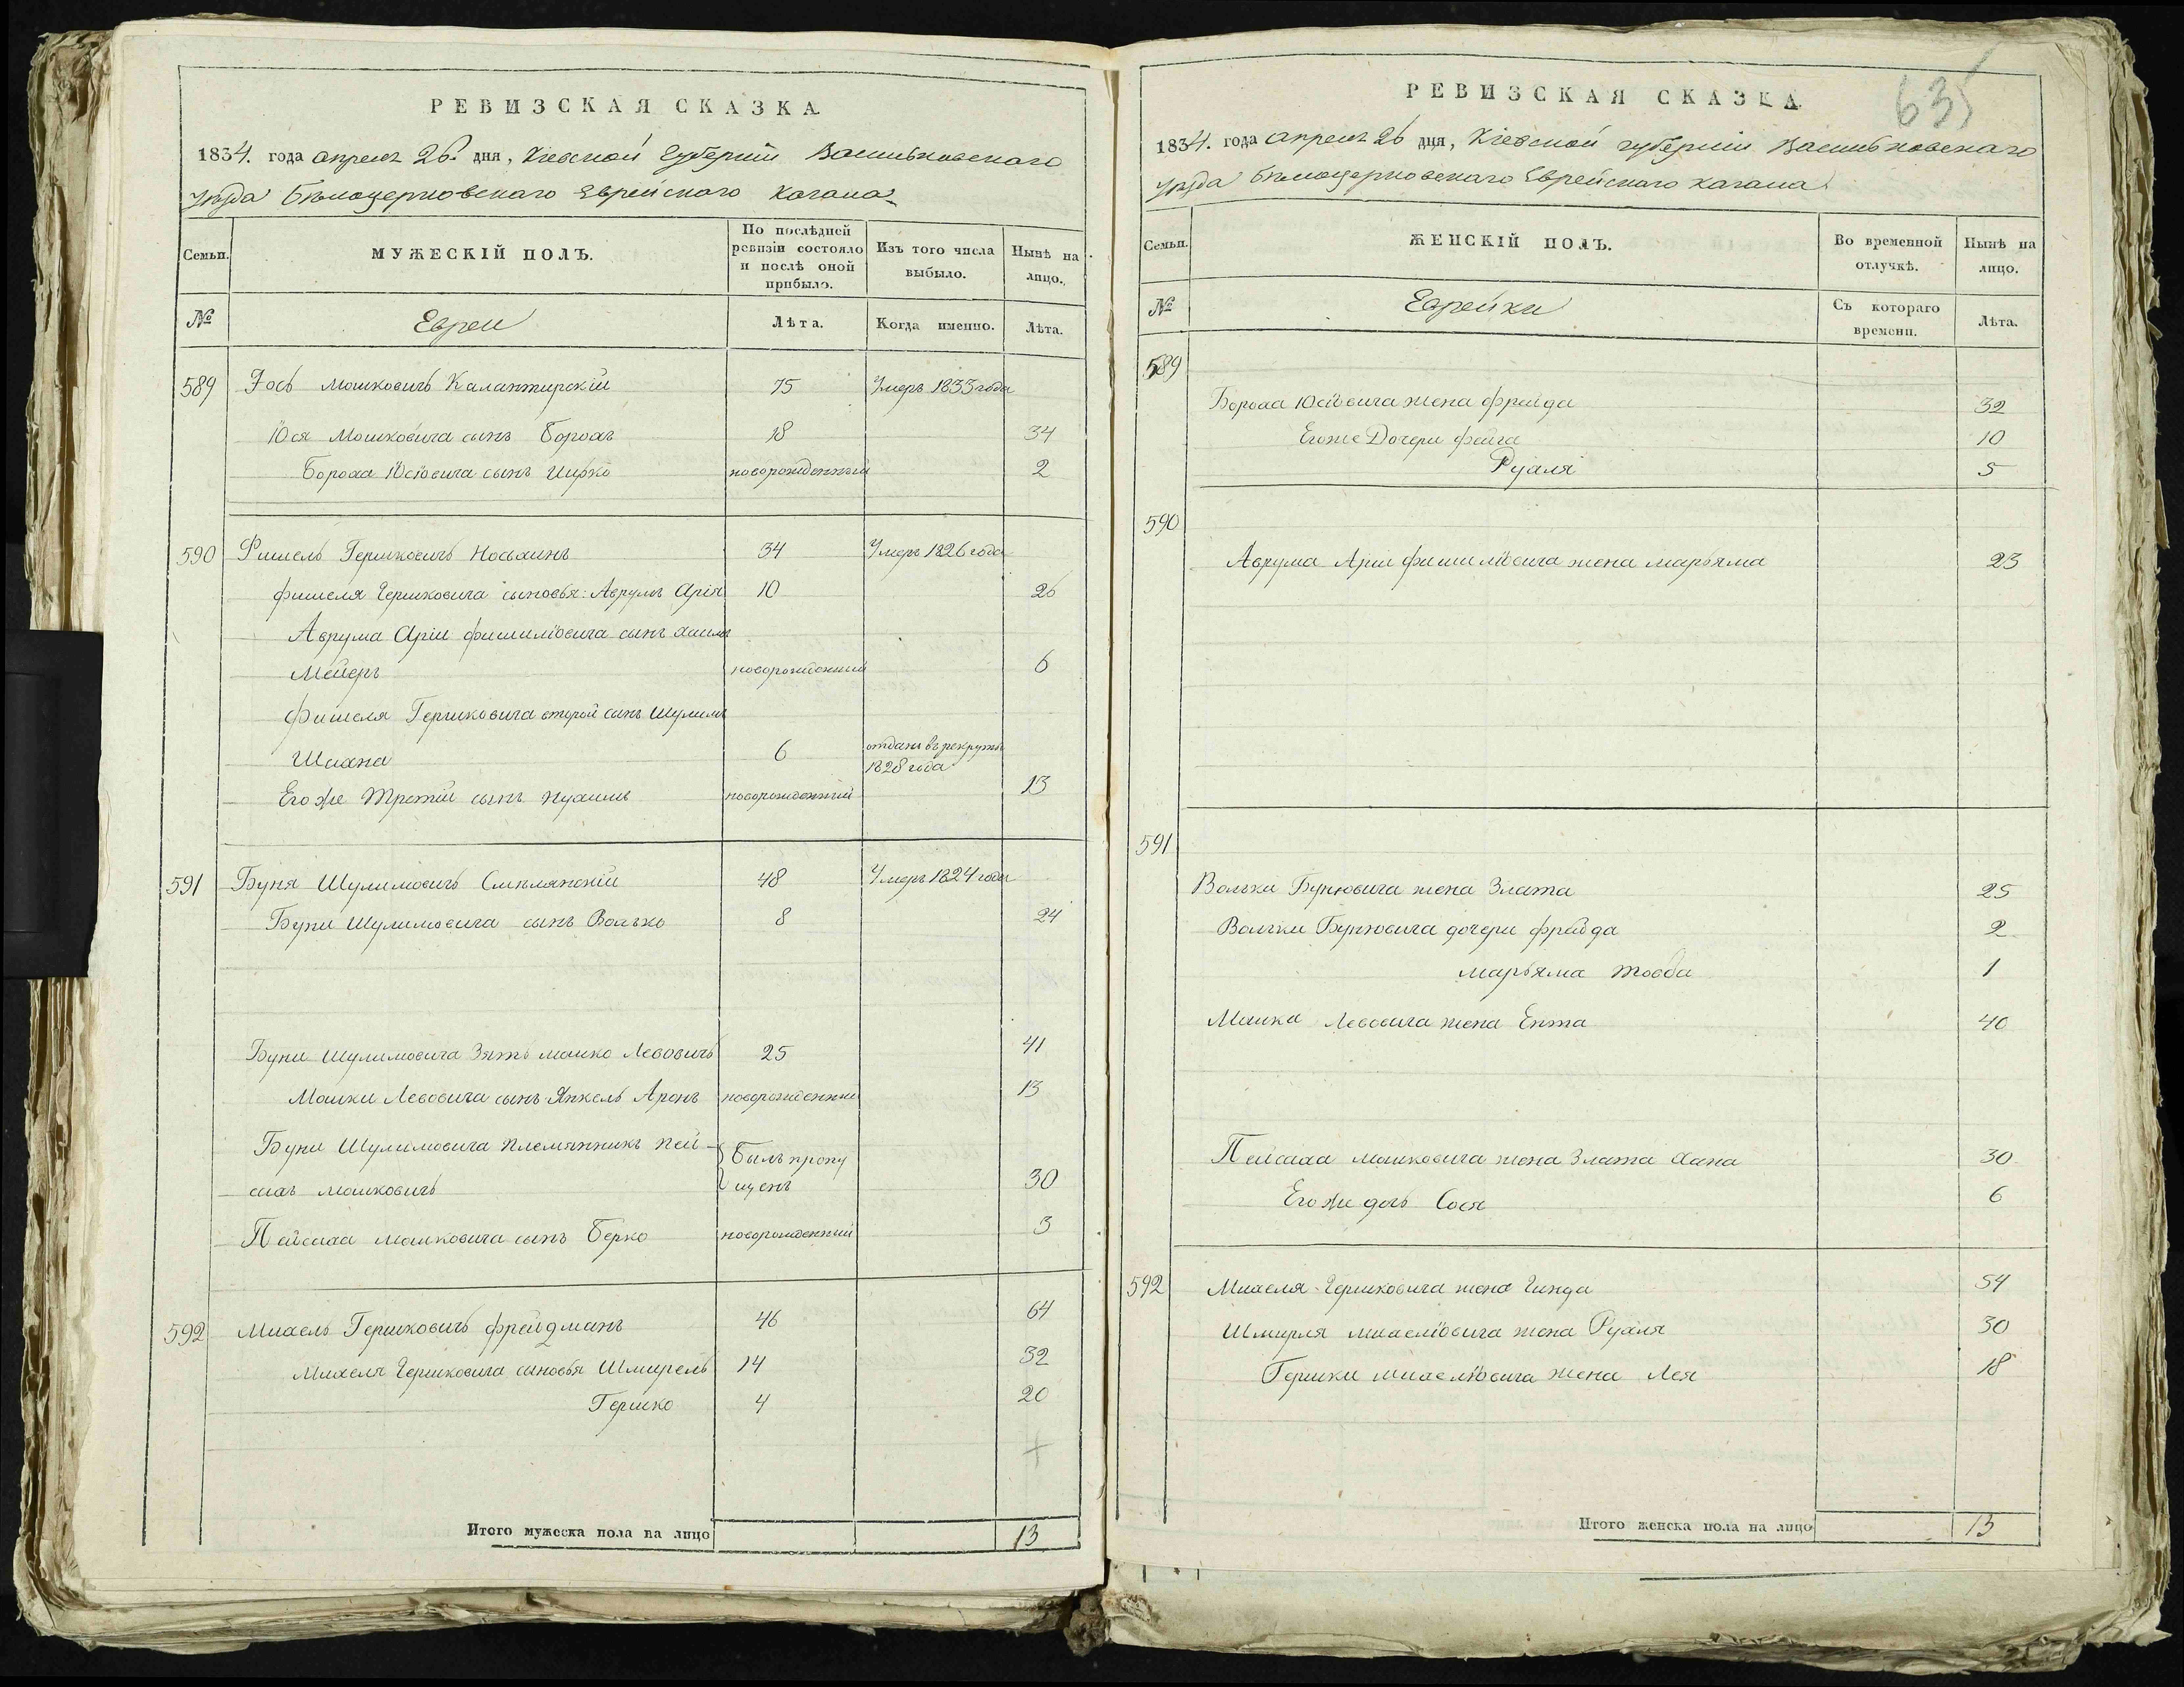 РЕВИЗСКАЯ СКАЗКА
1834. года апреля 26. дня, Кіевской Губерніи Васильковского
уѣзда Бѣлоцерковскаго Еврейского Кагала
Семьи. МУЖЕСКІЙ ПОЛЪ. По послѣдней ревизіи состояло и послѣ оной прибыло. Изъ того числа выбыло. Нынѣ на лицо.
№ Евреи Лѣта. Когда именно. Лѣта.
589 Іось Мошковичъ Калантирскій 75 Умеръ 1833 года
Юся Мошковича сынъ Борохъ 18 34
Бороха Юсіовича сынъ Ицко новорожденный 2
590 Фишель Гершковичъ Носхинъ 34 Умеръ 1826 года
фишеля Гершковича сыновья: Аврумъ Арія 10 26
Аврума Аріи фишилiовича сынъ Хаимъ
Мейеръ новорожденный 6
Фишеля Гершковича второй сынъ Шулимъ
Шахна 6 отданъ въ рекруты 1828 года
Его же Третій сынъ Нухимъ новорожденный 13
591 Буня Шулимовичъ Смѣлянскій 48 Умеръ 1824 года
Буни Шулимовича сынъ Волько 8 24
Буни Шулимовича Зять мошко Левовичъ 25 41
Мошки Левовича сынъ Янкель Аронъ новорожденный 13
Буни Шулимовича Племянникъ Пей-
сахъ мошковичъ былъ пропущенъ 30
Пейсаха мошковича сынъ Берко новорожденный 3
592 Михель Гершковичъ фрейдманъ 46 64
Михеля Гершковича сыновья Шмирель 14 32
Гершко 4 20
Итого мужеска пола на лицо 13
635
РЕВИЗСКАЯ СКАЗКА
1834. года апреля 26 дня, Кіевской губерніи Васильковскаго
уѣзда Бѣлоцерковскаго Еврейского кагала
Семьи. ЖЕНСКІЙ ПОЛЪ. Во временной отлучкѣ. Нынѣ на лицо.
№ Еврейки Съ котораго времени. Лѣта.
589
Бороха Юсіовича жена фрейда 32
Егоже Дочери фейга 10
Рухля 5
590
Аврума Аріи фишилiовича жена марьяма 23
591
Вольки Бунiовича жена Злата 25
Вольки Бунiовича дочери фрейда 2
марьяма тоеба 1
Мошки Левовича жена Ента 40
Пейсаха мошковича жена Злата Хана 30
Его же дочь Сося 6
592 Михеля Гершковича жена Гинда 54
Шмирля михелiовича жена Рухля 30
Гершки михелiовича жена Лея 18
Итого женска пола на лицо 13